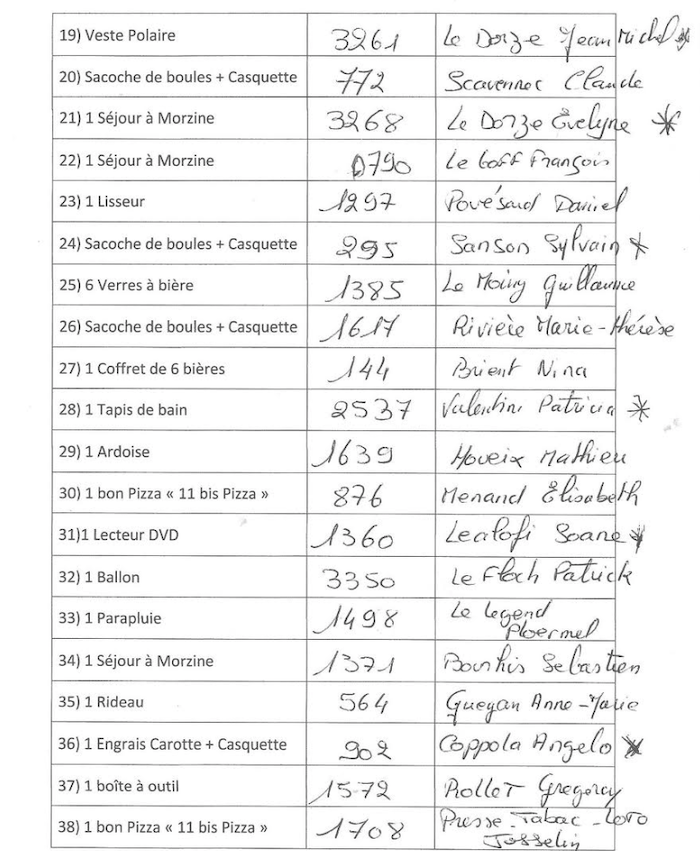 19) Veste Polaire 3261 Le Dorze Jean Michel *
20) Sacoche de boules + Casquette 772 Scavennec Claude
21) 1 Séjour à Morzine 3268 Le Dorze Evelyne *
22) 1 Séjour à Morzine 0790 Le Goff François
23) 1 Lisseur 1297 Daniel
24) Sacoche de boules + Casquette 295 Sanson Sylvain *
25) 6 Verres à bière 1385 Le Guillaume
26) Sacoche de boules + Casquette 1617 Rivière Marie-thérèse
27) 1 Coffret de 6 bières 144 Brient Nina
28) 1 Tapis de bain 2537 Valentini Patricia *
29) 1 Ardoise 1639 Moveix Mathieu
30) 1 bon Pizza « 11 bis Pizza » 876 Menand Élisabeth
31)1 Lecteur DVD 1360 Lealofi Soane *
32) 1 Ballon 3350 Le Floch Patrick
33) 1 Parapluie 1498 Le legend
Ploermel
34) 1 Séjour à Morzine 1371 Bourhis Sebastien
35) 1 Rideau 564 Guegan Anne-Marie
36) 1 Engrais Carotte + Casquette 902 Coppola Angelo *
37) 1 boîte à outil 1572 Rollet Gregory
38) 1 bon Pizza « 11 bis Pizza » 1708 Presse-Tabac-Loto
Josselin